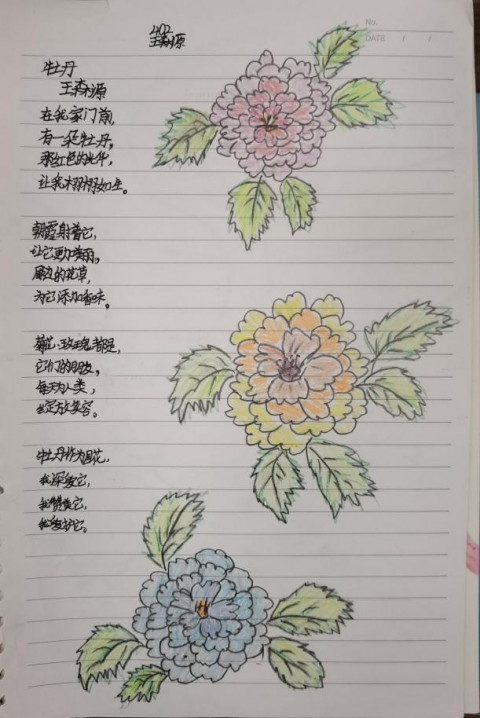 402
王森源
No.
DATE / /
牡丹
王森源
在我家门前,
有一朵牡丹,
粉红色的光华,
让我栩栩如生。
朝霞射着它,
让它更加美丽。
周边的花草,
为它添加香味。
菊花、玫瑰都是,
它们的朋友。
每天为人类,
绽放笑容。
牡丹作为国花,
我深爱它,
我赞美它,
我爱护它。